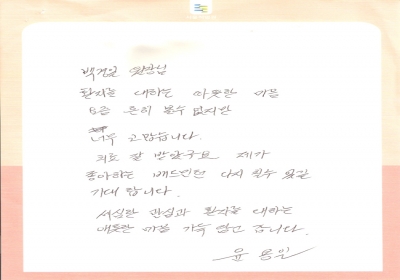 백경일 원장님
환자를 대하는 따뜻한 마음
요즘 흔히 볼수 없지만
너무 고맙습니다.
치료 잘 받았구요 제가
좋아하는 배드민턴 다시 칠수 있길
기대 합니다.
세심한 관심과 환자를 대하는
애틋한 마음 가득 안고 갑니다.
윤용일